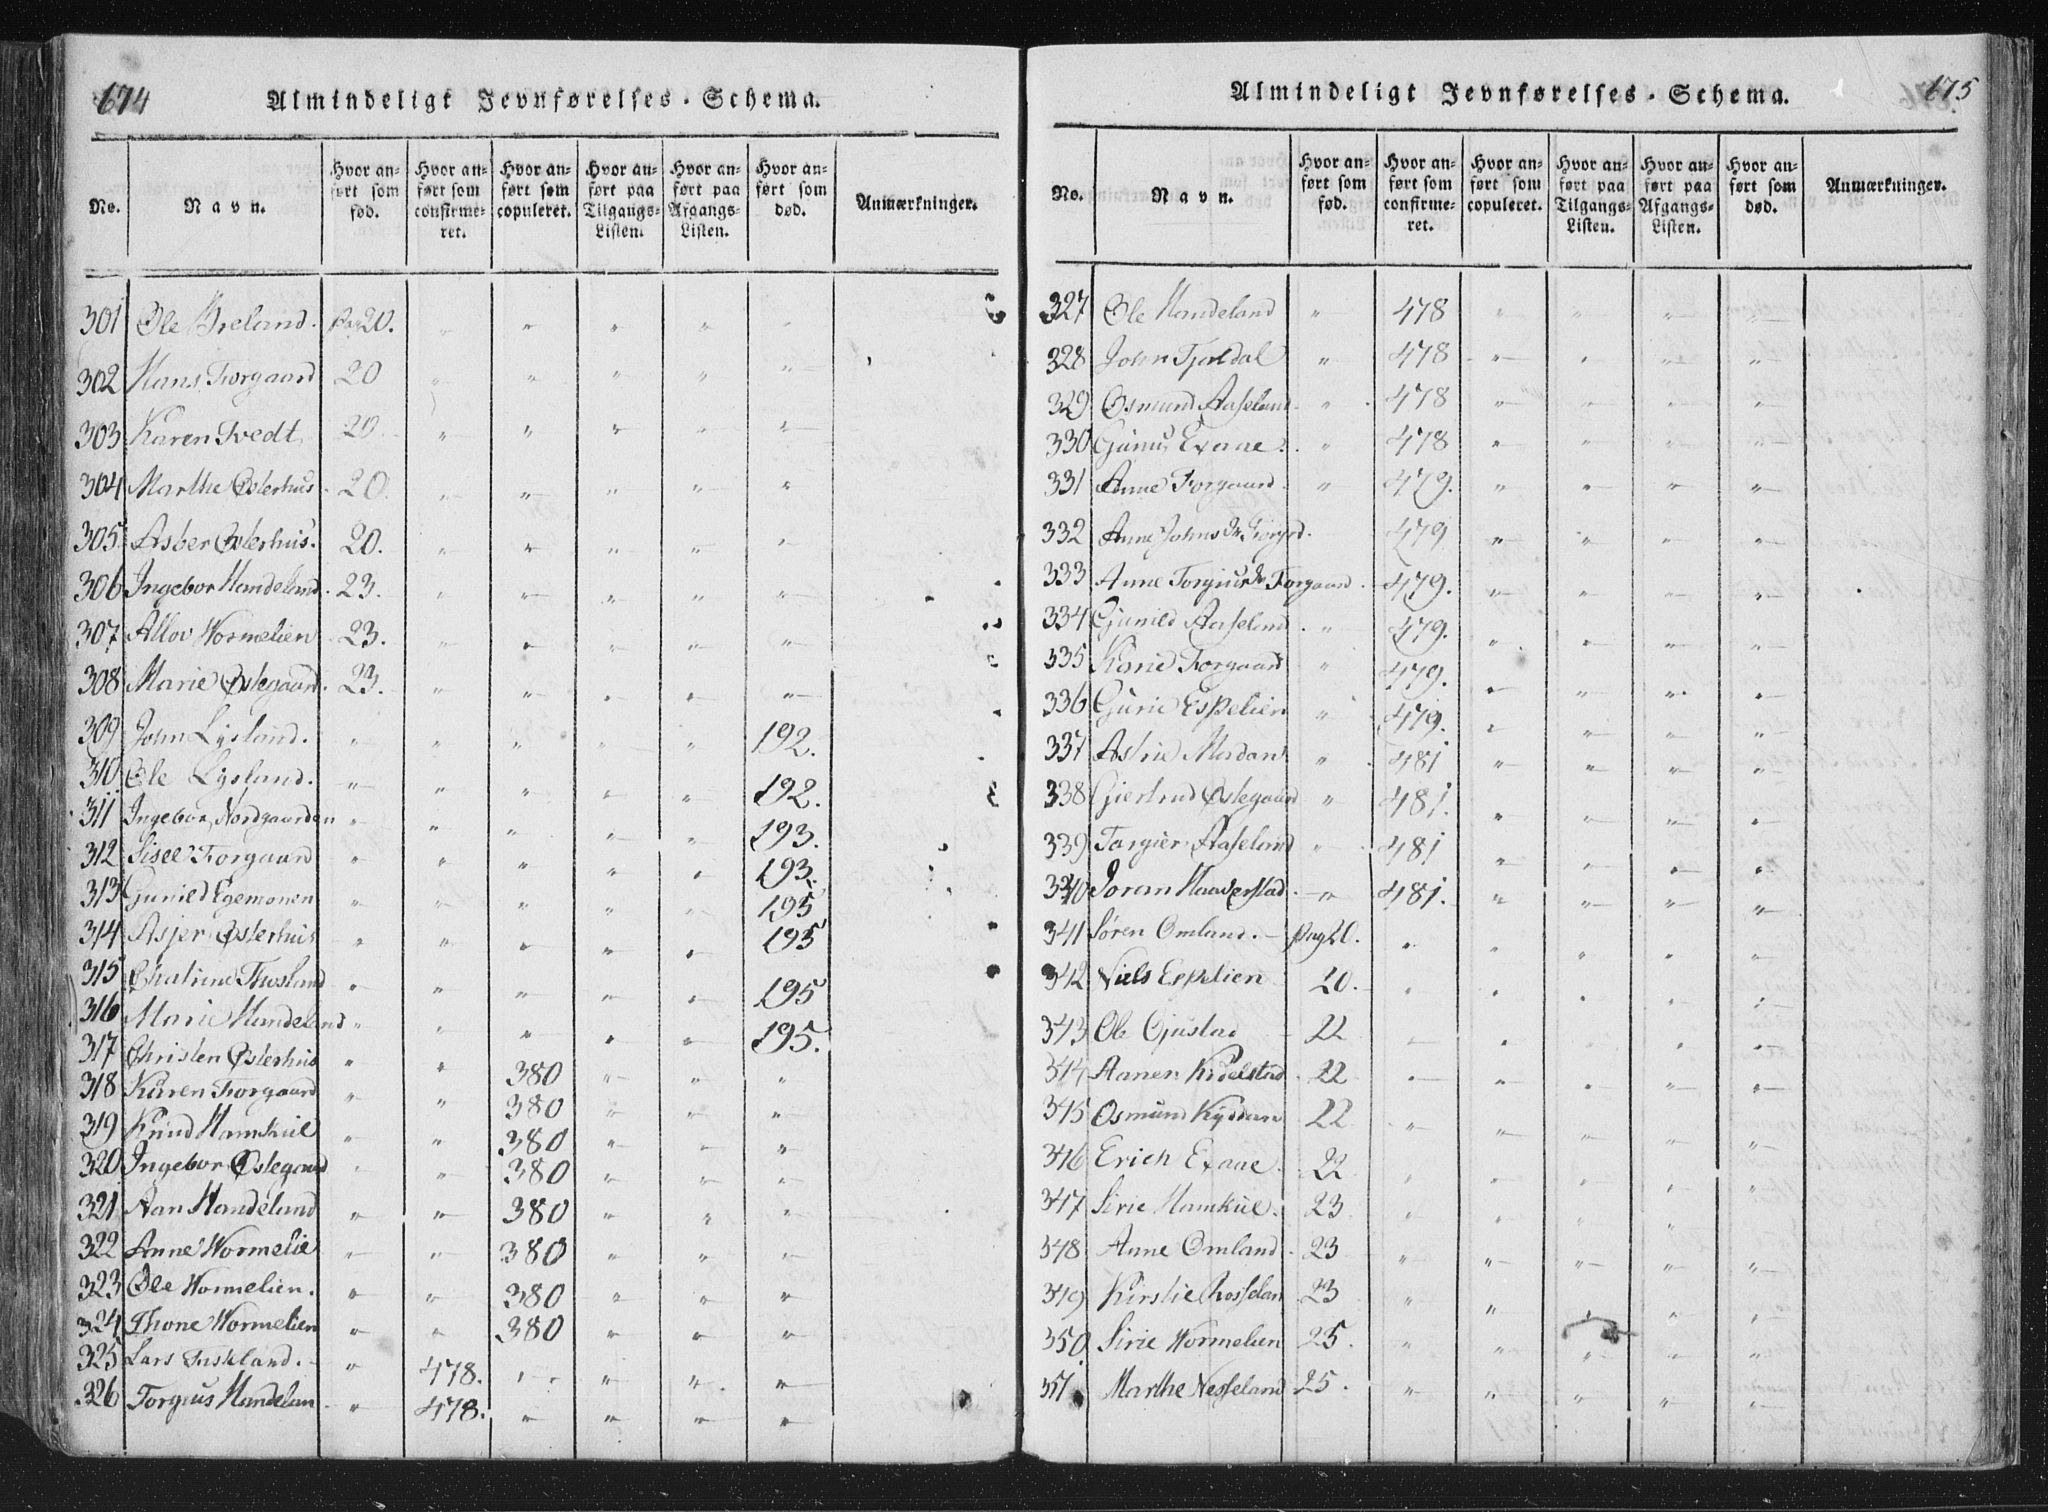 674
Almindeligt Jevnførelses-Schema.
No. Navn. Hvor anført som fød. Hvor anført som confirmeret. Hvor anført som copuleret. Hvor anført paa Tilgangs-Listen. Hvor anført paa Afgangs-Listen. Hvor anført som død. Anmærkninger.
301 Ole Breland. Pag 20. " " " " "
302 Hans Torgaard 20 " " " " "
303 Karen Tvedt 20 " " " " "
304 Marthe Østerhus. 20. " " " " "
305 Asber Østerhus. 20. " " " " "
306 Ingebor Handeland. 23. " " " " "
307 Allov Wormelien 23. " " " " "
308 Marie Østegaard. 23. " " " " "
309 John Lysland. " " " " " 192.
310 Ole Lysland. " " " " " 192.
311 Ingebor Nordgaarden " " " " " 193.
312 Sisel Torgaard " " " " " 193.
313 Gunild Egemonen " " " " " 195
314 Asjer Østerhus " " " " " 195
315 Chatrine Thosland " " " " " 195
316 Marie Handeland " " " " " 195.
317 Christen Østerhus " " 380 " " "
318 Karen Torgaard " " 380 " " "
319 Knud Hamkiil " " 380 " " "
320 Ingebor Østegaard " " 380 " " "
321 Aan Handeland " " 380 " " "
322 Anne Wormelie " " 380 " " "
323 Ole Wormelien. " " 380 " " "
324 Thone Wormelien " " 380 " " "
325 Lars Tuskland. " 478. " " " "
326 Torgius Handelan " 478. " " " "
675
Almindeligt Jevnførelses-Schema.
No. Navn. Hvor anført som fød. Hvor anført som confirmeret. Hvor anført som copuleret. Hvor anført paa Tilgangs-Listen. Hvor anført paa Afgangs-Listen. Hvor anført som død. Anmærkninger.
327 Ole Handeland " 478 " " " "
328 John Tjoldal " 478 " " " "
329 Osmund Aaseland " 478 " " " "
330 Gunus Exaae. " 478 " " " "
331 Anne Torgaard. " 479. " " " "
332 Anne Johns Dr Torgrd. 479 " " " "
333 Anne Torgiusdr Torgaard. 479. " " " "
334 Gunild Aaseland. " 479. " " " "
335 Karie Torgaard " 479. " " " "
336 Gurie Espelien " 479. " " " "
337 Astrie Mordan " 481 " " " "
338 Giertrud Østegaard " 481. " " " "
339 Targier Aaseland " 481 " " " "
340 Joran Haaverstad. " 481. " " " "
341 Søren Omland. Pag 20. " " " " "
342 Niels Espelien 20. " " " " "
343 Ole Gjustad 22 " " " " "
344 Aanen Kidelstad. 22 " " " " "
345 Osmund Kyddan 22 " " " " "
346 Erich Exaae. 22 " " " " "
347 Sirie Hamkiil. 23 " " " " "
348 Anne Omland. 23 " " " " "
349 Kirstie Rosselan 23 " " " " "
350. Sirie Wormelien 25. " " " " "
351 Marthe Nesseland 25. " " " " "